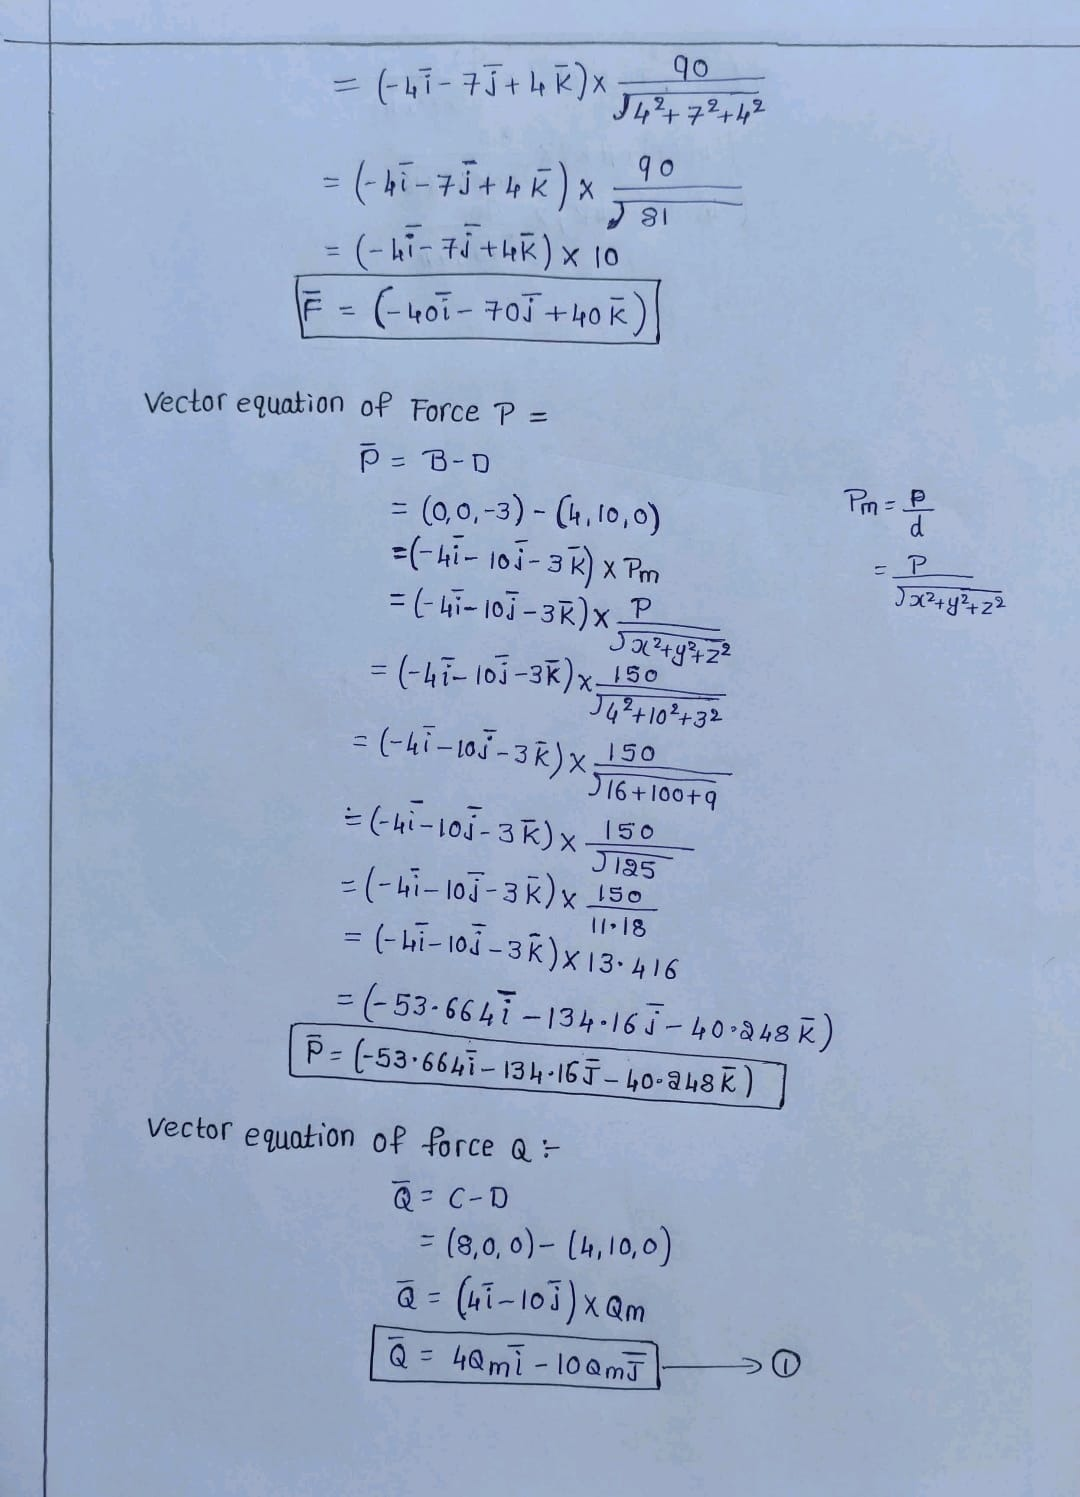 = (-4i̅ - 7j̅ + 4k̅) x 90/√4²+7²+4²
= (-4i̅ - 7j̅ + 4k̅) x 90/√81
= (-4i̅ - 7j̅ + 4k̅) x 10
F̅ = (-40i̅ - 70j̅ + 40k̅)
Vector equation of Force P =
P̅ = B-D
= (0,0,-3) - (4,10,0)
= (-4i̅ - 10j̅ - 3k̅) x Pm
Pm = P/d
= (-4i̅ - 10j̅ - 3k̅) x P/√x²+y²+z²
= P/√x²+y²+z²
= (-4i̅ - 10j̅ - 3k̅) x 150/√4²+10²+3²
= (-4i̅ - 10j̅ - 3k̅) x 150/√16+100+9
= (-4i̅ - 10j̅ - 3k̅) x 150/√125
= (-4i̅ - 10j̅ - 3k̅) x 150/11.18
= (-4i̅ - 10j̅ - 3k̅) x 13.416
= (-53.664i̅ - 134.16j̅ - 40.248k̅)
P̅ = (-53.664i̅ - 134.16j̅ - 40.248k̅)
Vector equation of force Q :-
Q̅ = C-D
= (8,0,0) - (4,10,0)
Q̅ = (4i̅ - 10j̅) x Qm
Q̅ = 4Qmi̅ - 10Qmj̅ → ①